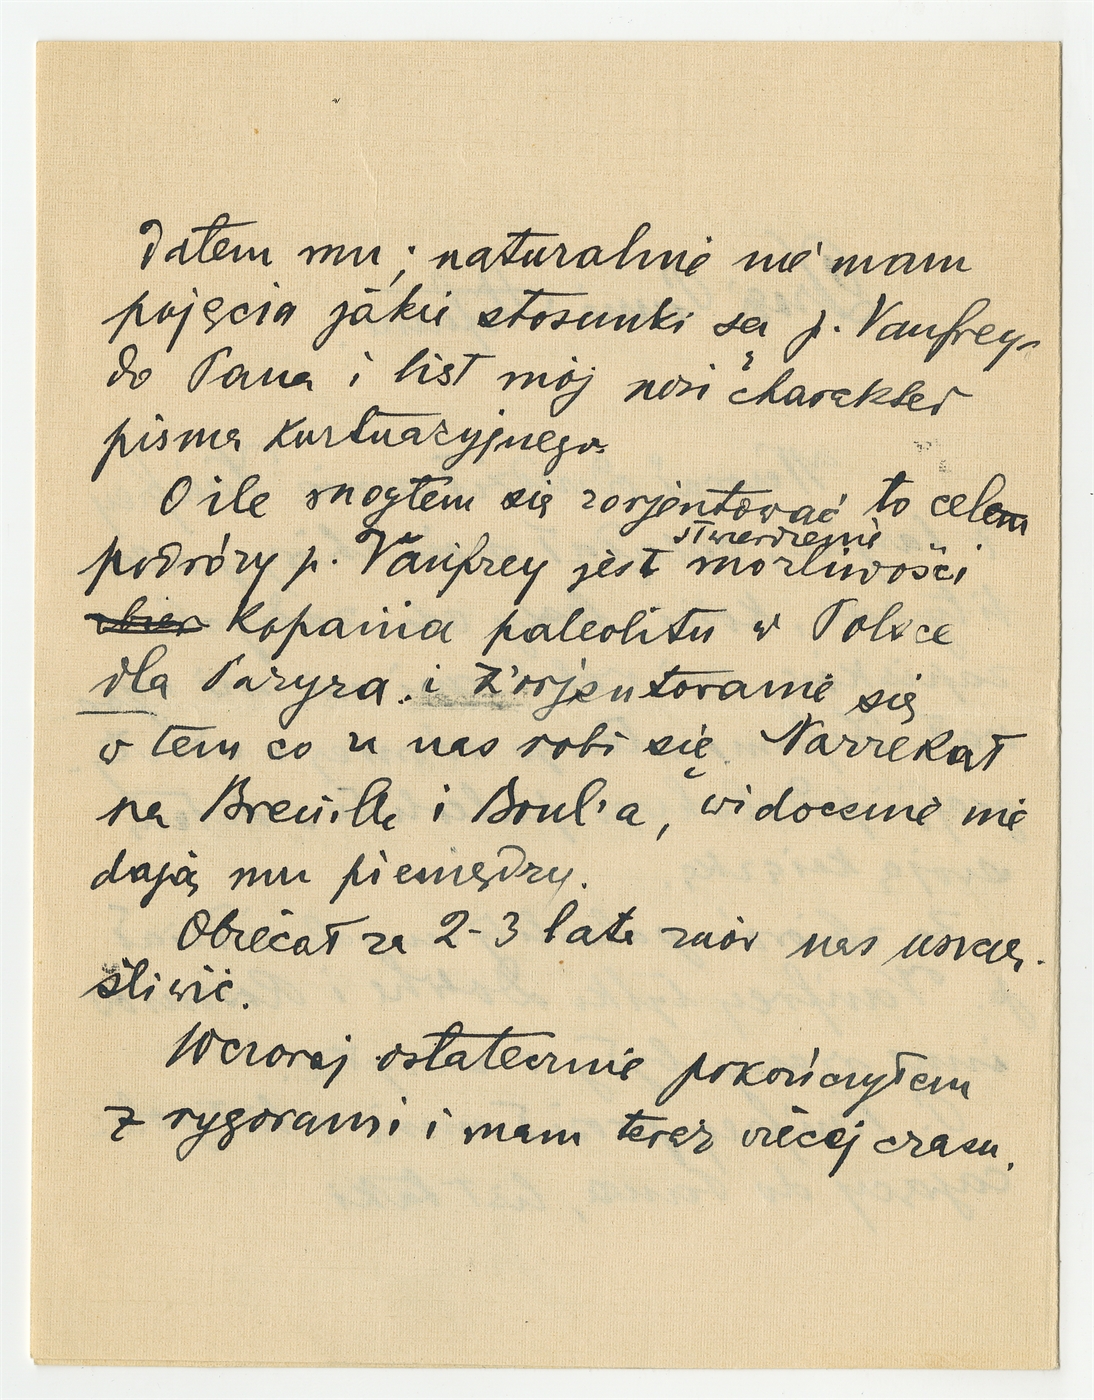 dałem mu; naturalnie nie mam
pojęcia jakie stosunki są p. Vaufrey
do Pana i list mój nosi charakter
pisma kurtuazyjnego.
O ile mogłem się zorjentować to celem
podróży p. Vaufrey jest stwierdzenie możliwości
kopania paleolitu w Polsce
dla Paryża i zorjentowanie się
w tem co u nas robi się. Narzekał
na Breuill'a i Boul'a, widocznie nie
dają mu pieniędzy.
Obiecał za 2-3 lata znów nas uszczę-
śliwić.
Wczoraj ostatecznie pokończyłem
z rygorami i mam teraz więcej czasu.